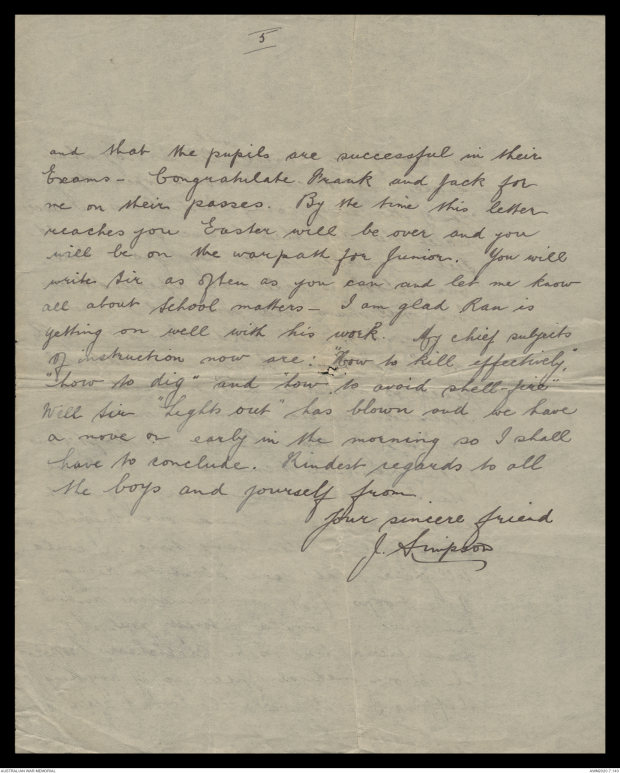 5
and that the pupils are successful in their
Exams - Congratulate Frank and Jack for
me on their passes. By the time this letter
reaches you Easter will be over and you
will be on the warpath for Junior. You will
write Sir as often as you can and let me know
all about School matters - I am glad Ran is
getting on well with his work. My chief subjects
of instruction now are: "How to kill effectively",
"how to dig" and "how to avoid shell-fire"
Well Sir "Lights out" has blown and we have
a move on early in the morning so I shall
have to conclude. Kindest regards to all
the boys and yourself from
your sincere friend
J. Simpson
AUSTRALIAN WAR MEMORIAL